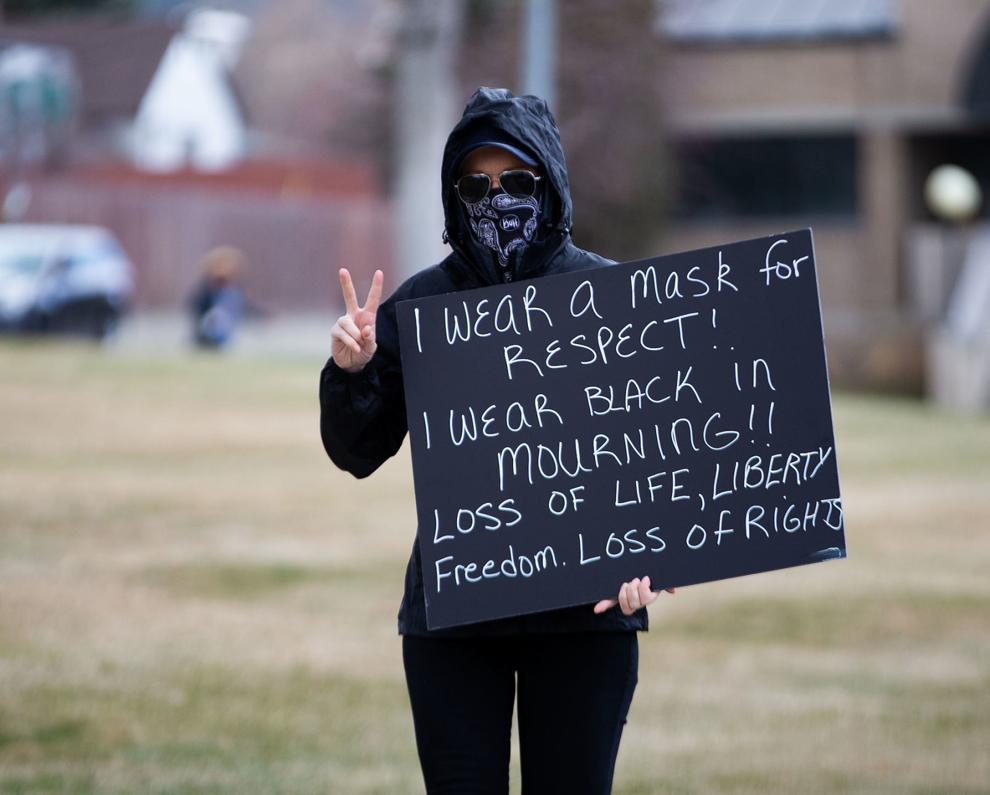 Buff
I WEAR a Mask for
RESPECT!!
I WEAR BLACK in
MOURNING!!
LOSS OF LIFE, LIBERTY
Freedom. Loss of RIGHTS